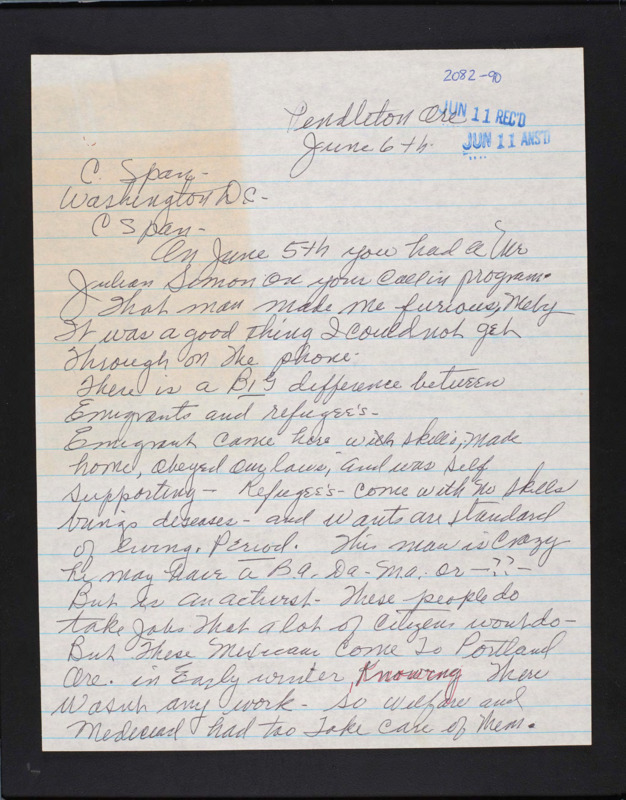 2082-90
Pendleton Ore
JUN 11 REC'D
June 6th.
JUN 11 ANS'D
C. Span-
Washington D.C-
C Span-
On June 5th you had a Mr
Julian Simon on your call in program.
That man made me furious, Meby
It was a good thing I could not get
through on the phone.
There is a BIG difference between
Emigrants and refugee's-
Emigrant came here with skills, made
home, obeyed our laws, and was self
supporting- Refugee's- come with no skills
brings diseases- and wants are standard
of living. Period. This man is crazy
he may have a B.a. Da-Ma. or -??-
But is an activist- These people do
take Jobs that a lot of citizens wont do-
But these Mexicans come to Portland
Ore. in Early winter, Knowing there
wasnt any work- so welfare and
Medicaid had too take care of them.